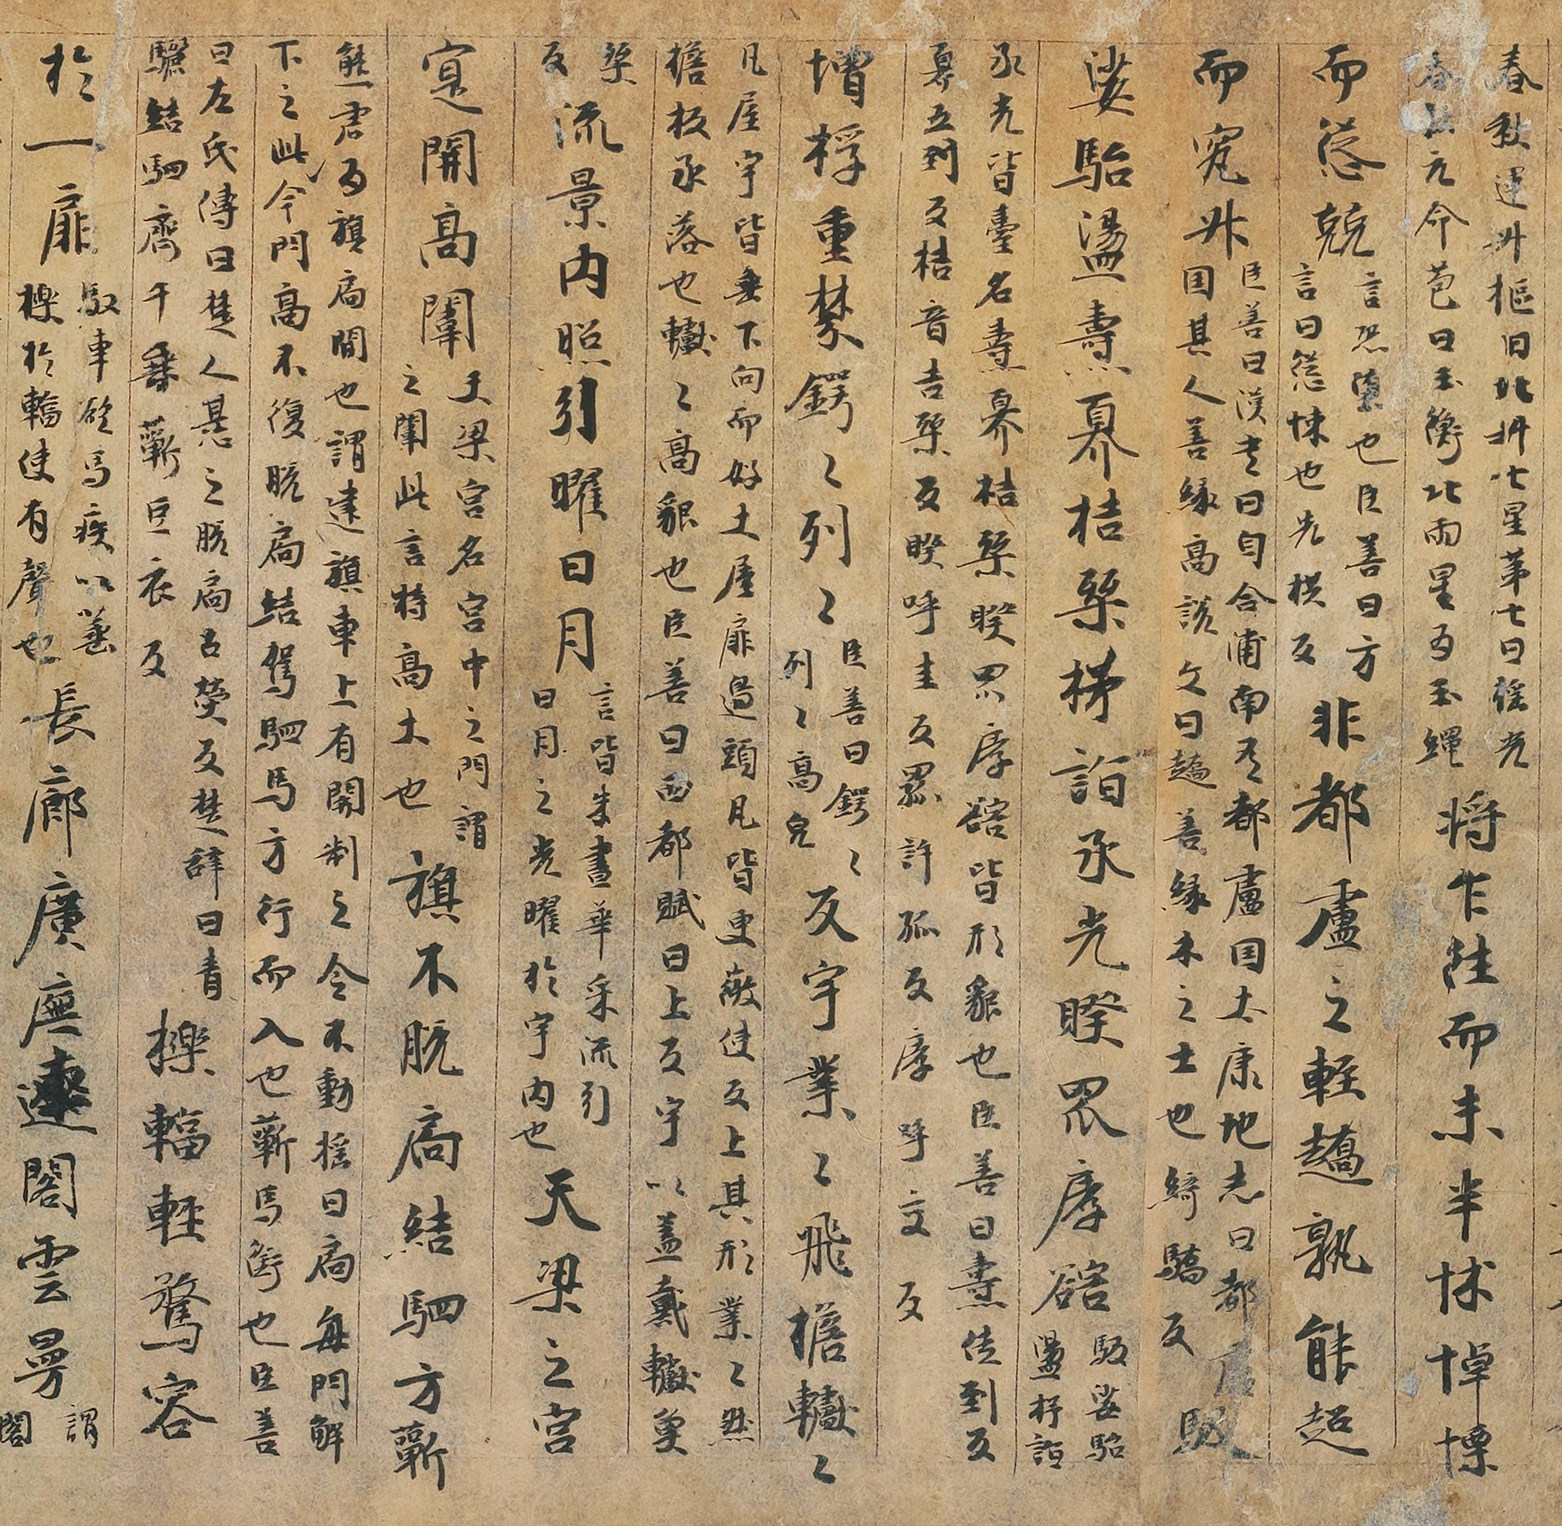 春秋運斗樞曰北斗七星第七曰摇光
春秋元命苞曰玉衡北兩星為玉繩
將乍往而未半怵悼慄
而慫兢
言恐墮也臣善曰方
言曰慫悚也先拱反
非都盧之輕趫孰能超
而究升
臣善曰漢書曰自合浦南有都盧国太康地志曰都盧
国其人善緣高説文曰趫善緣木之士也綺驕反
馺
娑駘盪燾奡桔桀枍詣承光睽罛庨豁
馺娑駘
盪枍詣
承光皆臺名燾奡桔桀睽罛庨豁皆形貌也臣善曰燾徒到反
奡五到反桔音吉桀反睽呼圭反罛許孤反庨呼交反
增桴重棼鍔〻列〻
臣善曰鍔〻
列〻高皃
反宇業〻飛檐𨎬〻
凡屋宇皆垂下向而好土屋扉過頭凡皆更微使反上其形業〻然
檐板承落也𨎬〻高貌也臣善曰西都賦曰上反宇以盖戴𨎬魚
桀
反
流景内照引曜日月
言皆朱畫華采流引
日月之光曜於宇内也
天梁之宫
寔開高闈
天梁宫名宫中之門謂
之闈此言特高大也
旗不脱扃結駟方蘄
熊虎為旗扃関也謂建旗車上有関制之令不動摇曰扃每門解
下之此今門高不復脱扃結駕駟馬方行而入也蘄馬銜也臣善
曰左氏傳曰楚人惎之脱扃古熒反楚辭曰青
驪結駟齊千乗蘄巨衣反
櫟輻輕騖容
於一扉
馭車欲馬疾以箠
櫟於輻使有聲也
長廊廣廡連閣雲曼
謂
閣